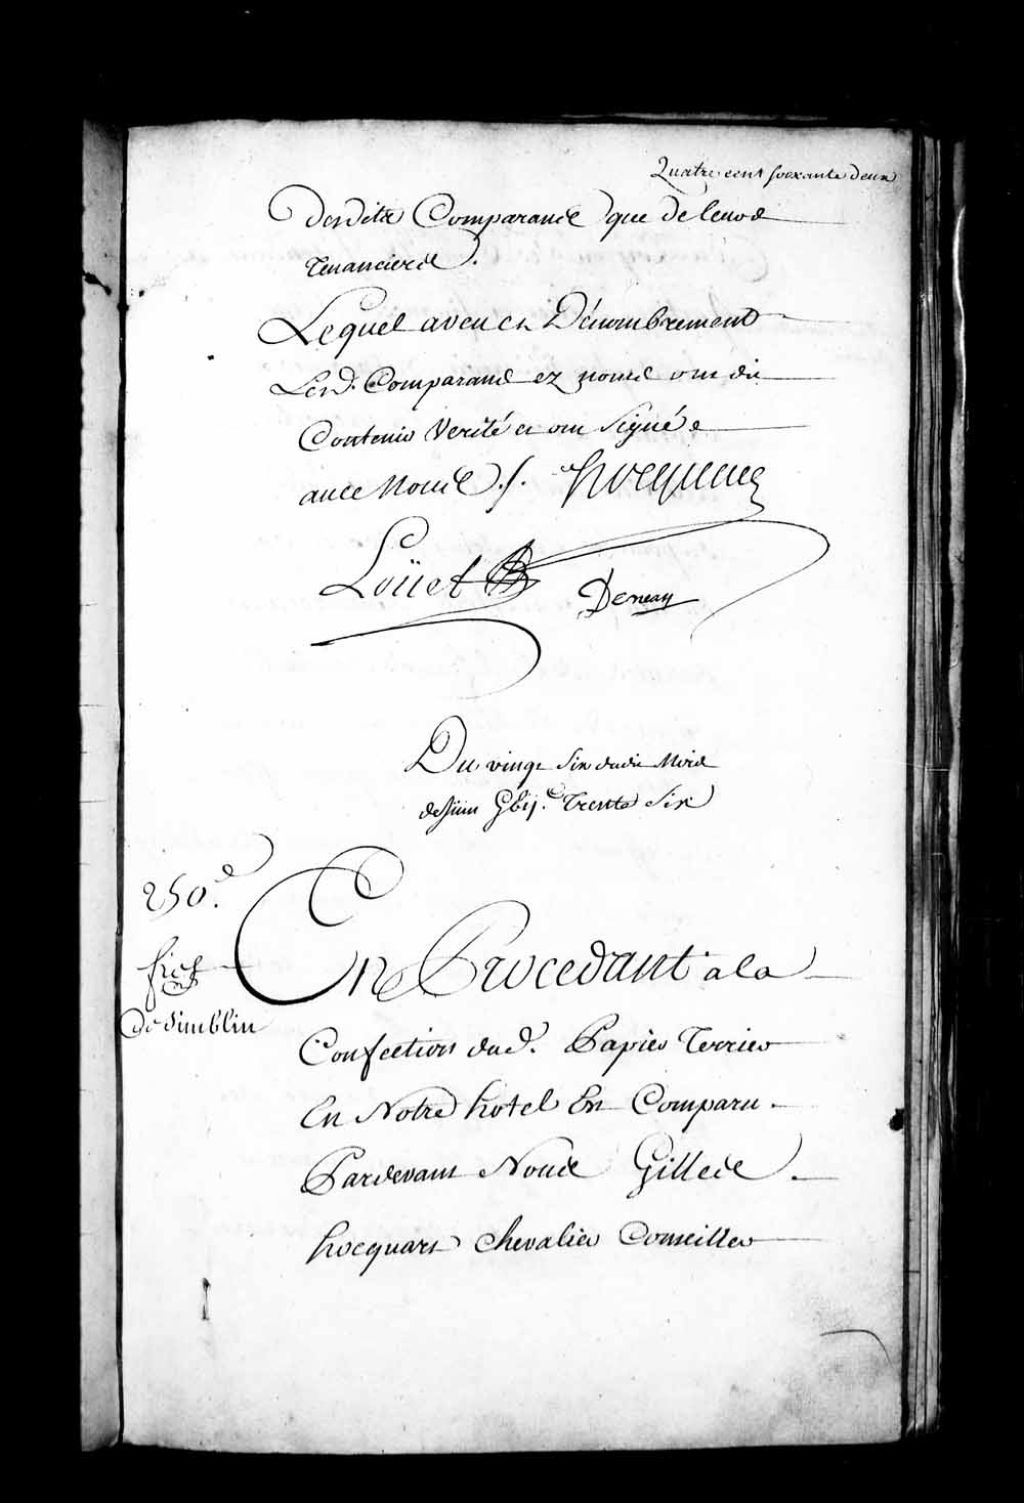 Quatre cent soixante deux
desdits Comparans que de leurs
Tenanciers.
Lequel aveu et Dénombrement
Lesd. Comparans ez noms ont dit
Contenir Verité et ont Signé
avec Nous ./. hocquart
Loüet Deneau
Du vingt Six dudit Mois
de Juin Trente Six
250.e
fief
de Simblin
En Procedant a la
Confection dud. Papier Terrier
En Notre hotel Est Comparu
Pardevant Nous Gilles
hocquart Chevalier Conseiller